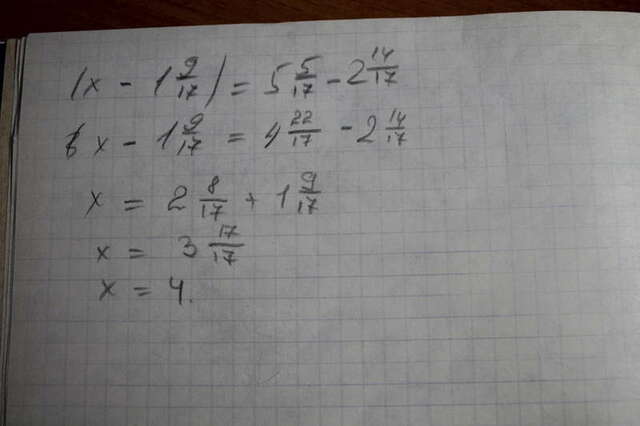 (x - 1 9/17) = 5 5/17 - 2 14/17
x - 1 9/17 = 4 22/17 - 2 14/17
x = 2 8/17 + 1 9/17
x = 3 17/17
x = 4.